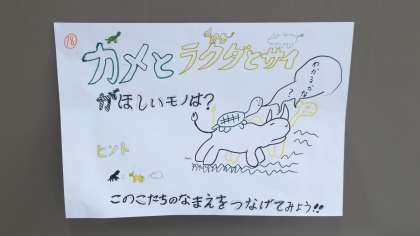 カメとラクダとサイ
がほしいモノは?
わかるかな?
ヒント
このこたちのなまえをつなげてみよう!!